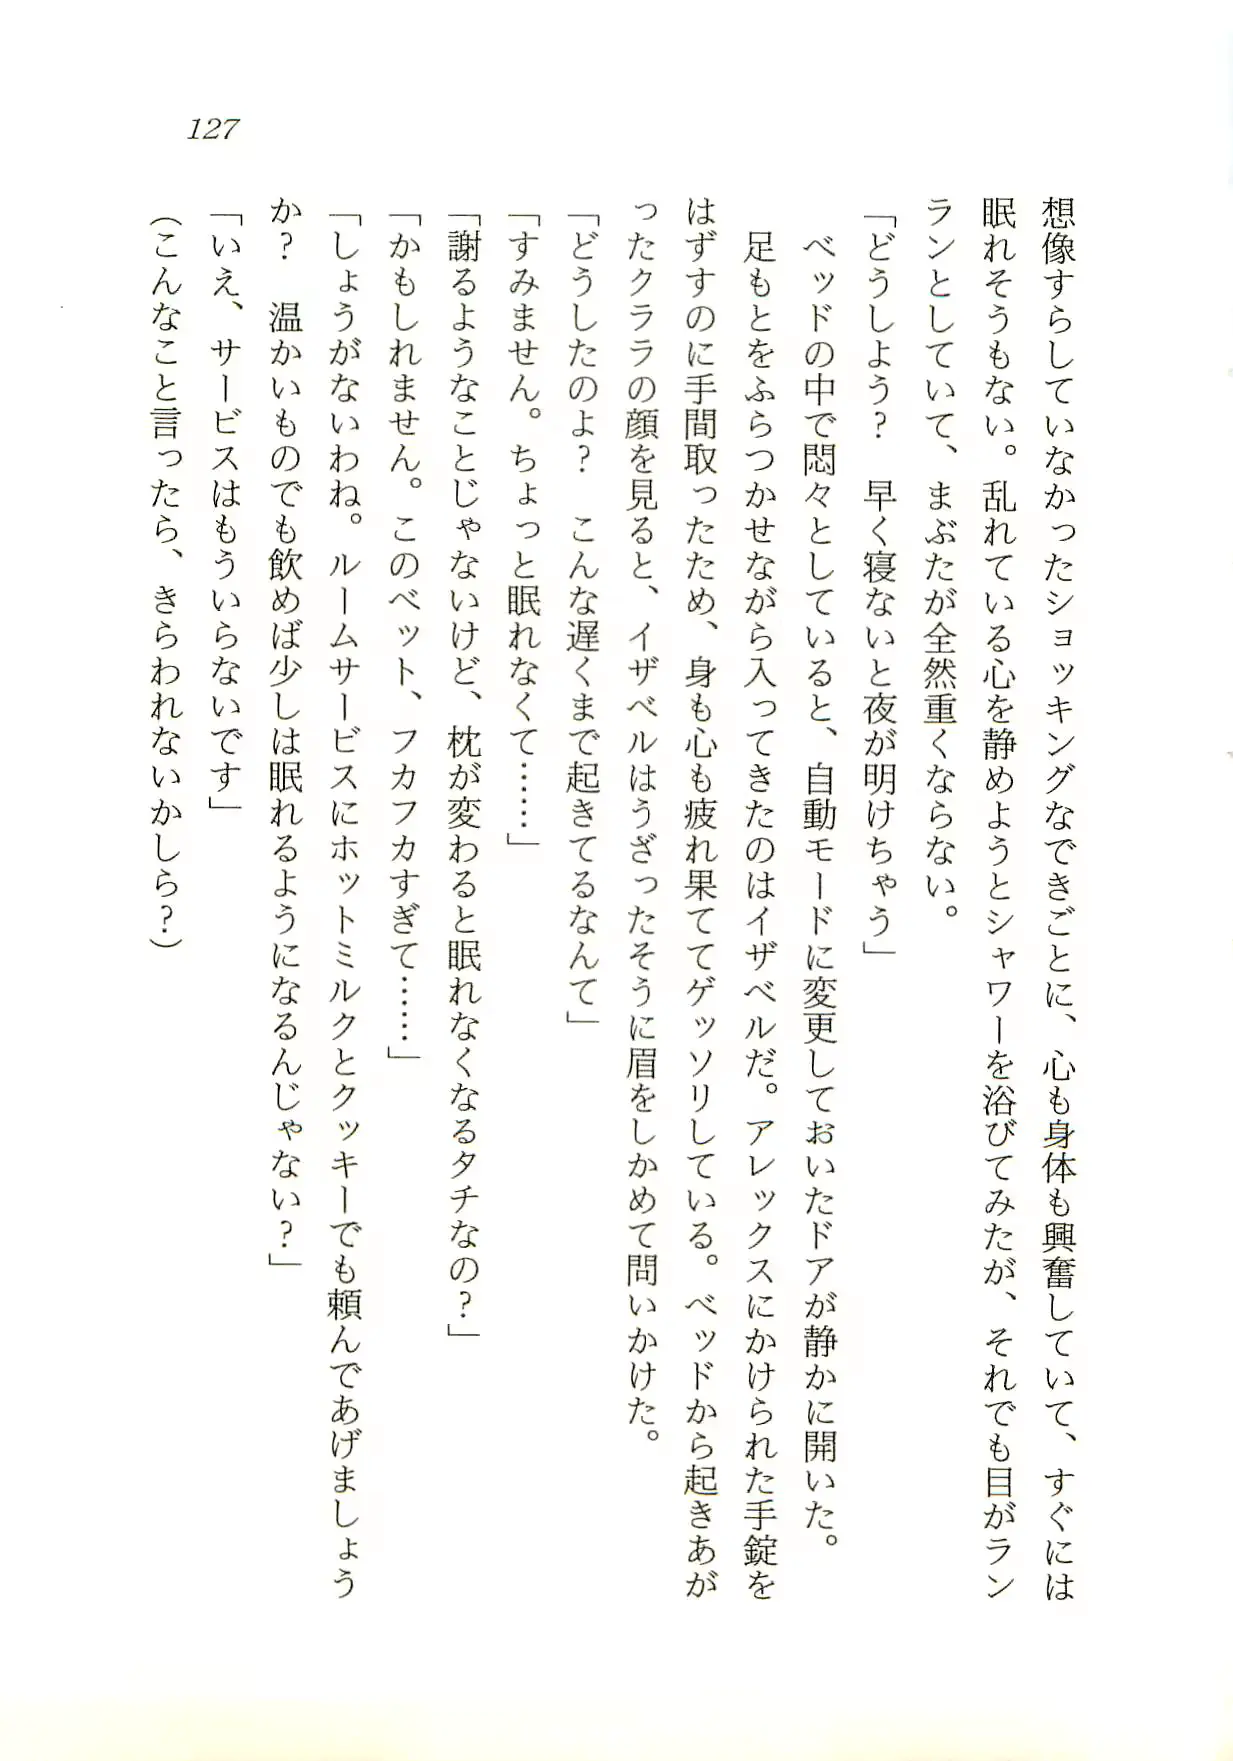 127
想像すらしていなかったショッキングなできごとに、心も身体も興奮していて、すぐには
眠れそうもない。乱れている心を静めようとシャワーを浴びてみたが、それでも目がラン
ランとしていて、まぶたが全然重くならない。
「どうしよう?　早く寝ないと夜が明けちゃう」
　ベッドの中で悶々としていると、自動モードに変更しておいたドアが静かに開いた。
　足もとをふらつかせながら入ってきたのはイザベルだ。アレックスにかけられた手錠を
はずすのに手間取ったため、身も心も疲れ果ててゲッソリしている。ベッドから起きあが
ったクララの顔を見ると、イザベルはうざったそうに眉をしかめて問いかけた。
「どうしたのよ?　こんな遅くまで起きてるなんて」
「すみません。ちょっと眠れなくて……」
「謝るようなことじゃないけど、枕が変わると眠れなくなるタチなの?」
「かもしれません。このベット、フカフカすぎて……」
「しょうがないわね。ルームサービスにホットミルクとクッキーでも頼んであげましょう
か?　温かいものでも飲めば少しは眠れるようになるんじゃない?」
「いえ、サービスはもういらないです」
(こんなこと言ったら、きらわれないかしら?)